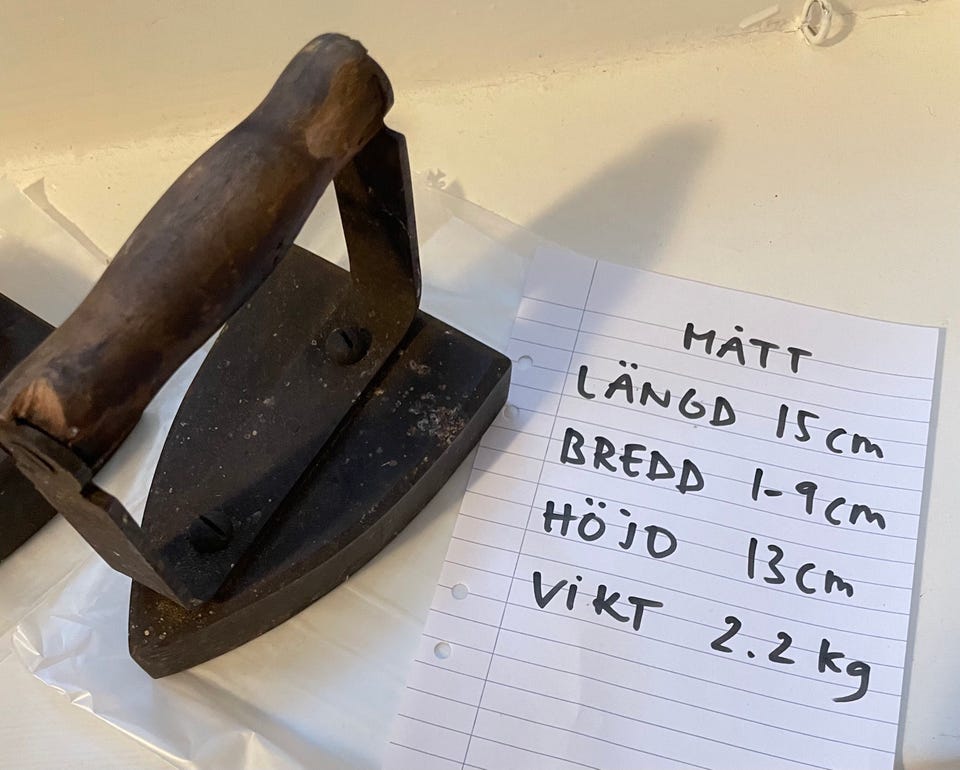 MÅTT
LÄNGD 15cm
BREDD 1-9cm
HÖJD 13cm
ViKT 2.2 kg